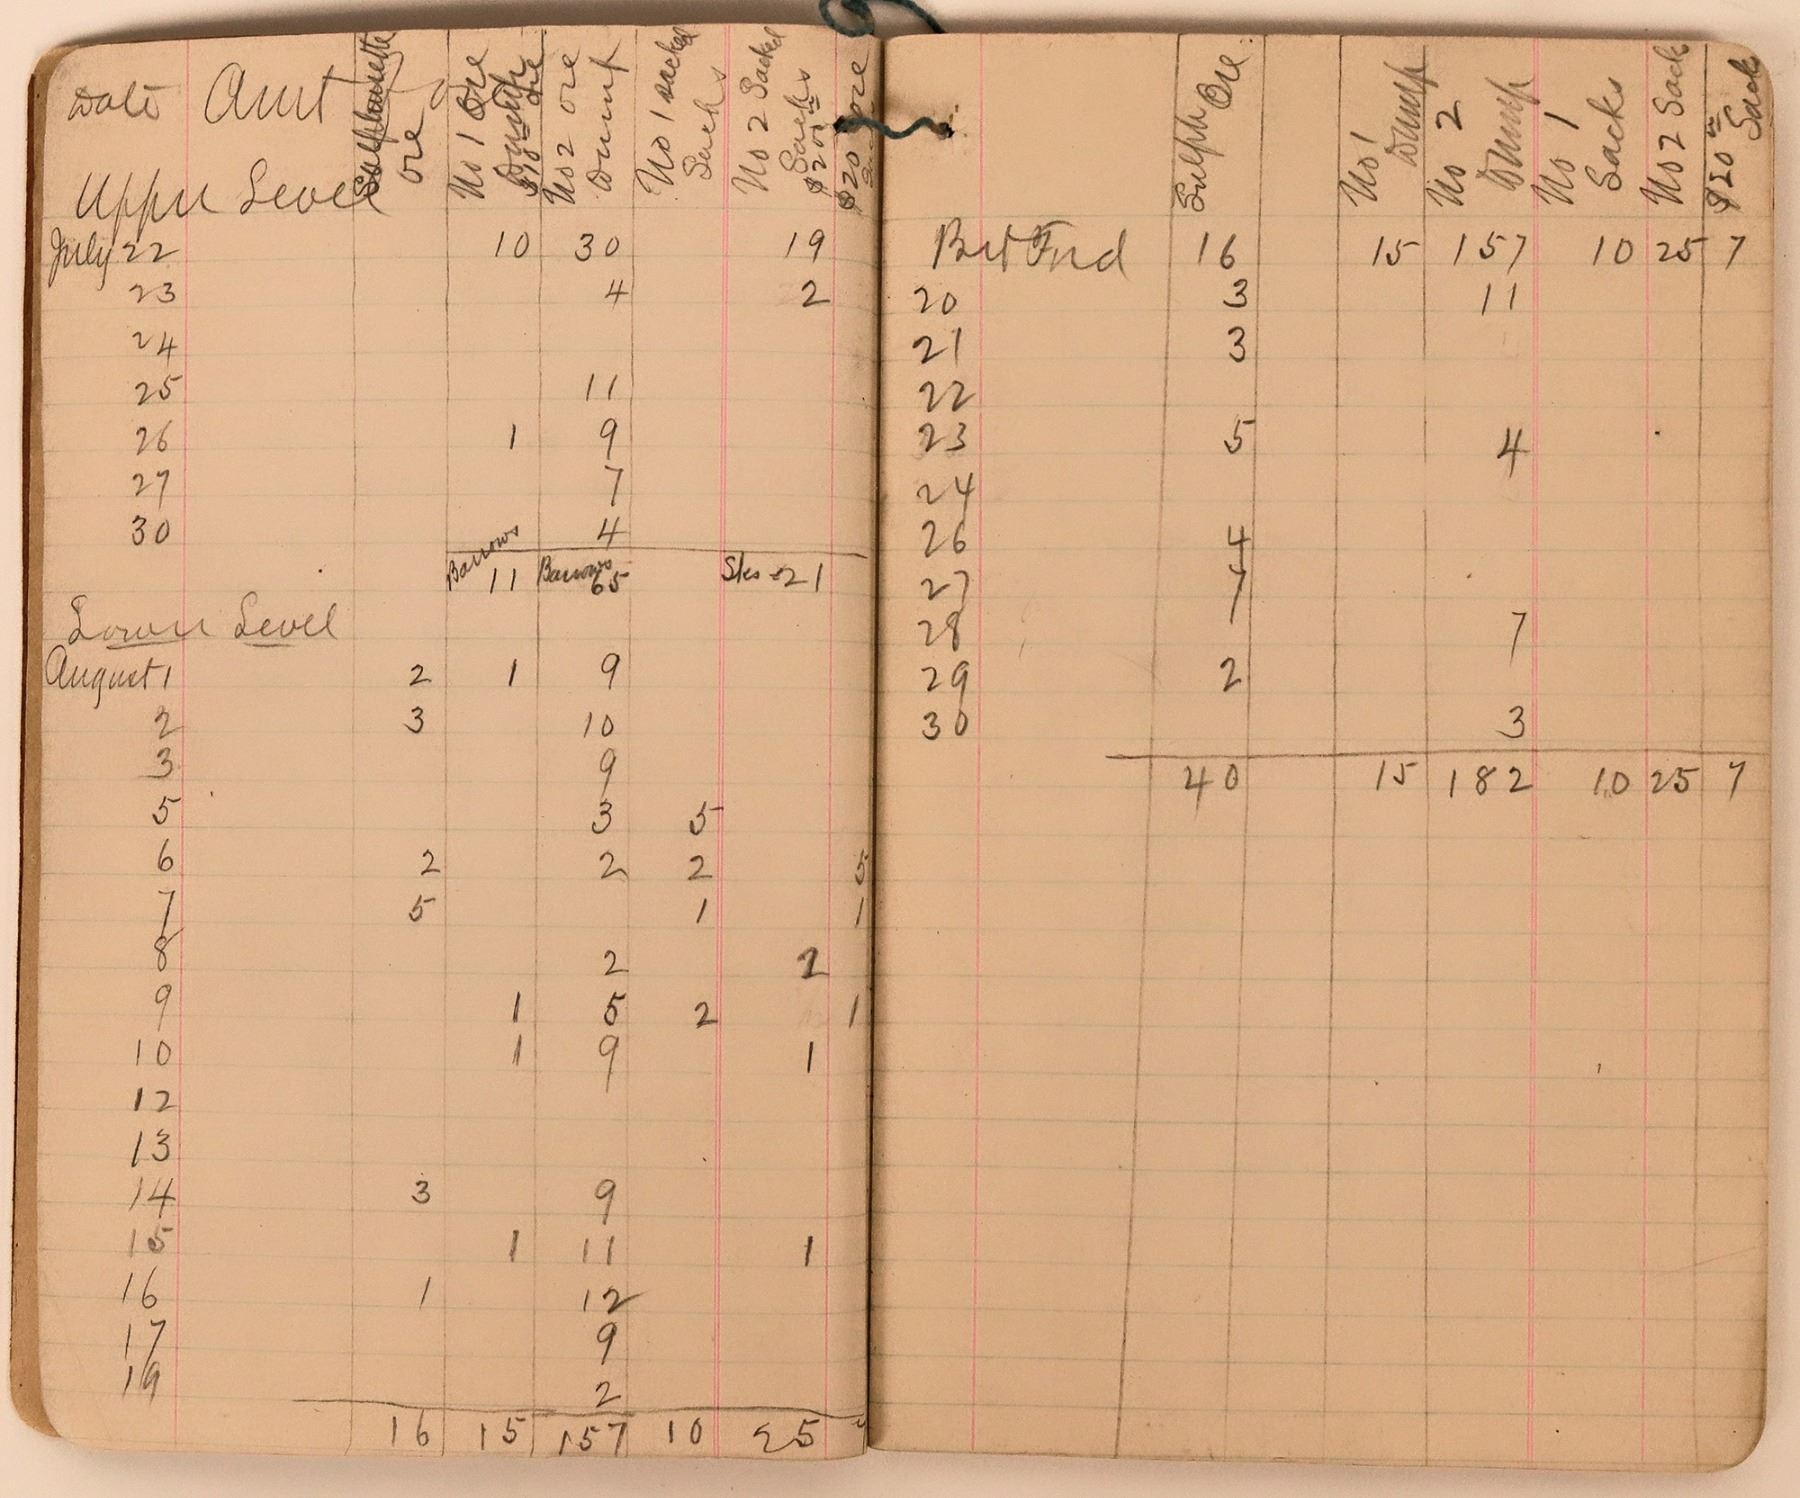 Date Amt Sulphurette ore No 1 Ore Dump $10 ore No 2 ore Dump No 1 sacked Sacks No 2 Sacked Sacks $20 $20 ore
Upper Level
July 22 10 30 19
23 4 2
24
25 11
26 1 9
27 7
30 4
Barrows 11 Barrows 65 Sks 21
Lower Level
August 1 2 1 9
2 3 10
3 9
5 3 5
6 2 2 2 5
7 5 1 1
8 2 2
9 1 5 2 1
10 1 9 1
12
13
14 3 9
15 1 11 1
16 1 12
17 9
19 2
16 15 157 10 25
Sulph Ore. No 1 Dump No 2 Dump No 1 Sacks No 2 Sack $20 Sack
Brt Frd 16 15 157 10 25 7
20 3 11
21 3
22
23 5 4
24
26 4
27 7
28 7
29 2
30 3
40 15 182 10 25 7